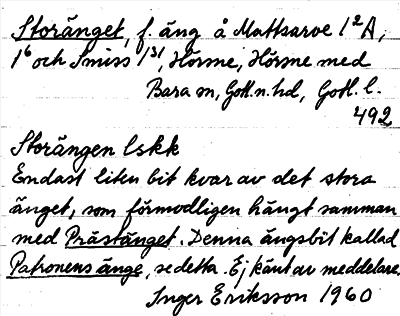 Storänget, f. äng å Mattsarve 1²A,
1⁶ och Smiss 1³¹, Hörsne, Hörsne med
Bara sn, Gotl. n. hd, Gotl. l.
492
Storängen lskk
Endast liten bit kvar av det stora
änget, som förmodligen hängt samman
med Prästänget. Denna ängsbit kallad
Patronens änge, se detta. Ej känt av meddelare.
Inger Eriksson 1960